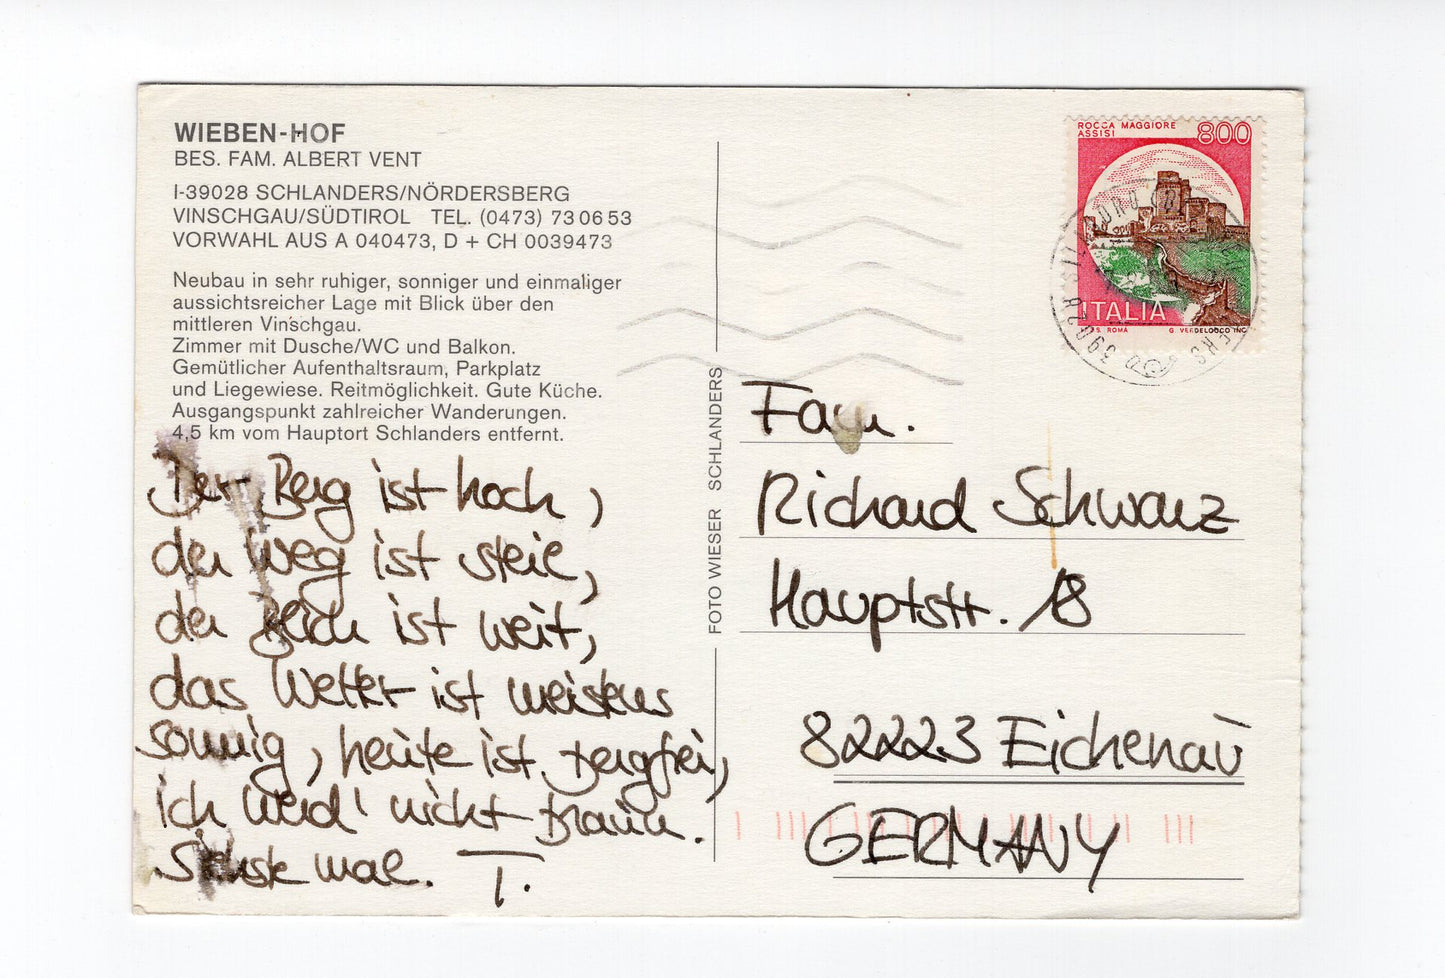 WIEBEN-HOF
BES. FAM. ALBERT VENT
I-39028 SCHLANDERS/NÖRDERSBERG
VINSCHGAU/SÜDTIROL TEL. (0473) 73 06 53
VORWAHL AUS A 040473, D + CH 0039473
Neubau in sehr ruhiger, sonniger und einmaliger
aussichtsreicher Lage mit Blick über den
mittleren Vinschgau.
Zimmer mit Dusche/WC und Balkon.
Gemütlicher Aufenthaltsraum, Parkplatz
und Liegewiese. Reitmöglichkeit. Gute Küche.
Ausgangspunkt zahlreicher Wanderungen.
4,5 km vom Hauptort Schlanders entfernt.
Der Berg ist hoch,
der Weg ist steil,
der Blick ist weit,
das Wetter ist meistens
sonnig, heute ist bergfrei,
ich werd' nicht braun.
Siehste mal. T.
FOTO WIESER SCHLANDERS
ROCCA MAGGIORE
ASSISI
800
ITALIA
I.P.S. ROMA
39028
Fam.
Richard Schwarz
Hauptstr. 18
82223 Eichenau
GERMANY